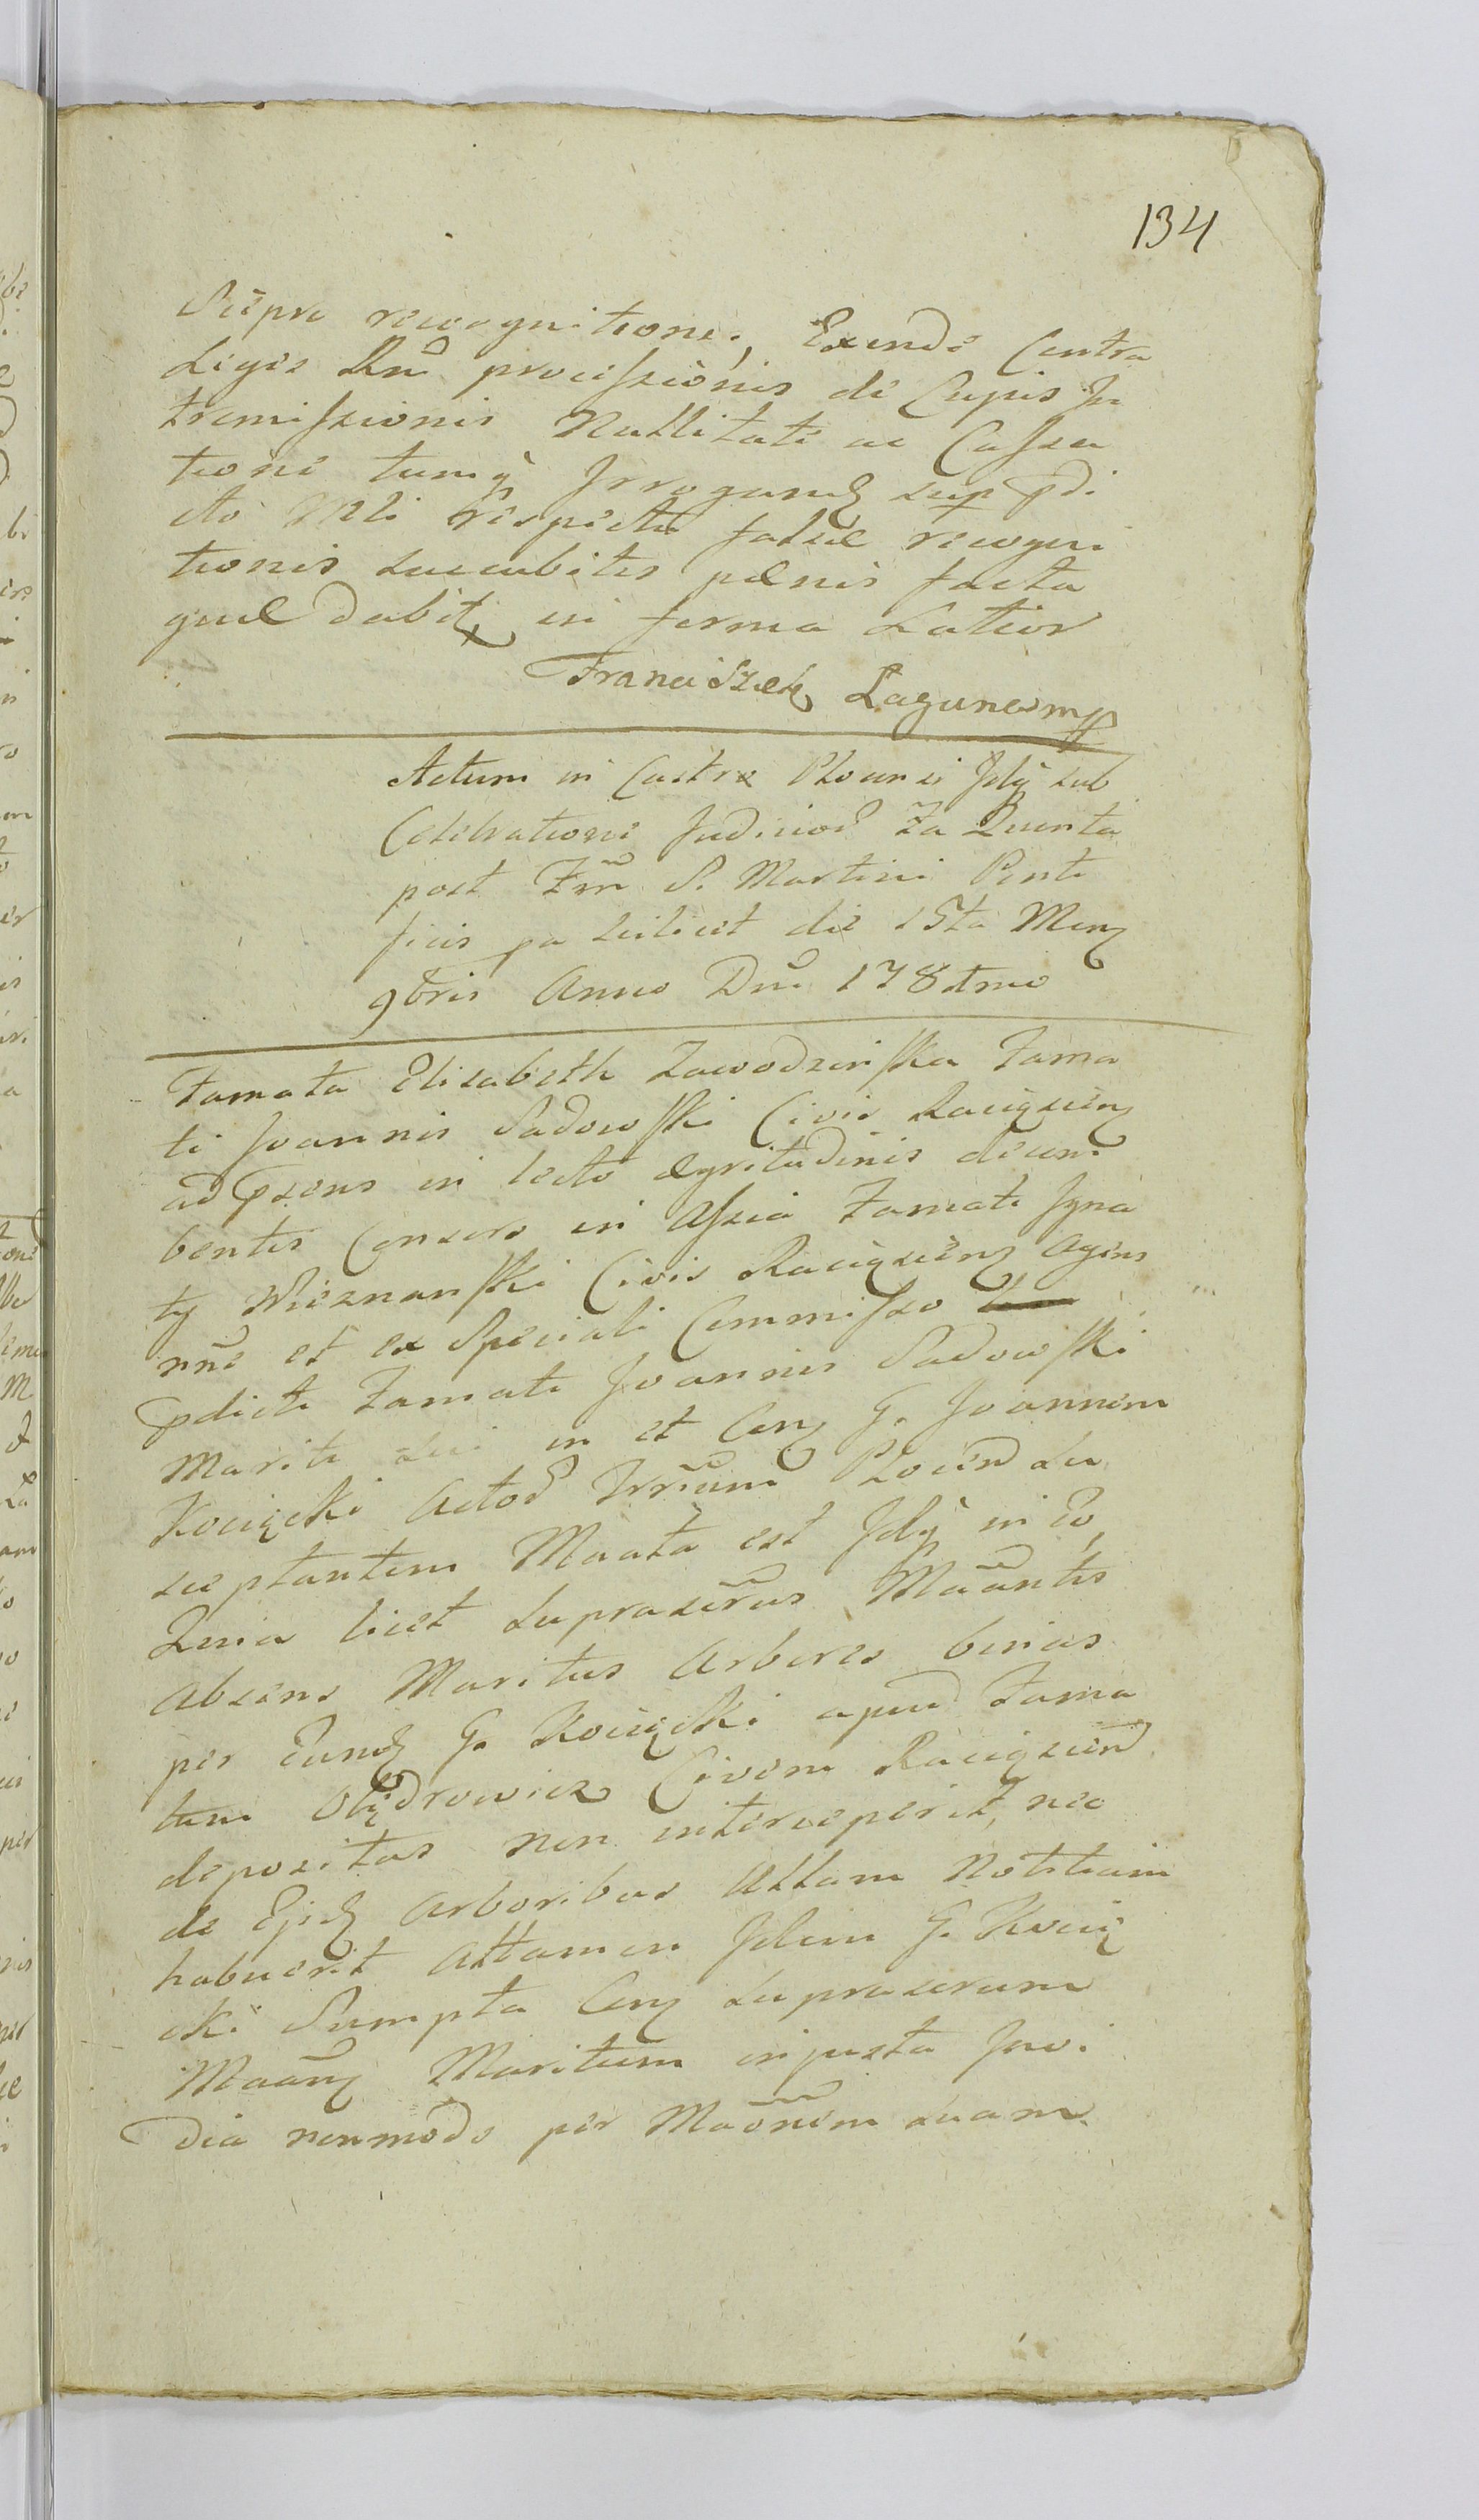 134
Suepra recognitione, Exinde Contra
Leges Rnĩ processionis de Cujus In
tromissionis Nullitate ac Cassa
tione tumq̃ Irrogand sup p̱di
cto Mli respectu falsæ recogni
tionis succubitis pœnis facta
quæ dabitȝ in forma Latior
Franciszek Łaguna mp
Actum in Castro Plocensi fȩlq̃ sub
Celebratione Judicioȓ Fa Quinta
post Fm̃ S. Martini Ponti
ficis pa scilicet die 15ta Mens
9bris Anno Dnĩ 1781mo
Famata Elisabeth Zawodzinska Fama
ti Joannis Sadowski Civis Raciązien
ad p̱sens in lecto ægritudinis decum
bentis Consors in Assia Famati Igna
ty Wieznanski Civis Raciązien agens
nñe et ex Speciali Commisso
p̱dicti Famati Joannis Sadowski
Mariti sui in et Con G. Joannem
Kocięcki Actoȓ Trr̃ium Plocen Su
sceptantem Maata est fdlq̃ in Eo,
Quia licet supraserus Mãantis
absens Maritus Arbores binas
per Eund G. Kocięcki apud Fama
tum Olędrowicz Civem Raciązien
depositas non interceperit, nec
de Ejsd Arboribus Ullam Notitiam
habuerit Attamen Idem G. Kocię
cki Sumpta Con supraserum
Maan Maritum injusta Invi
dia nonmodo per Maõnem suam